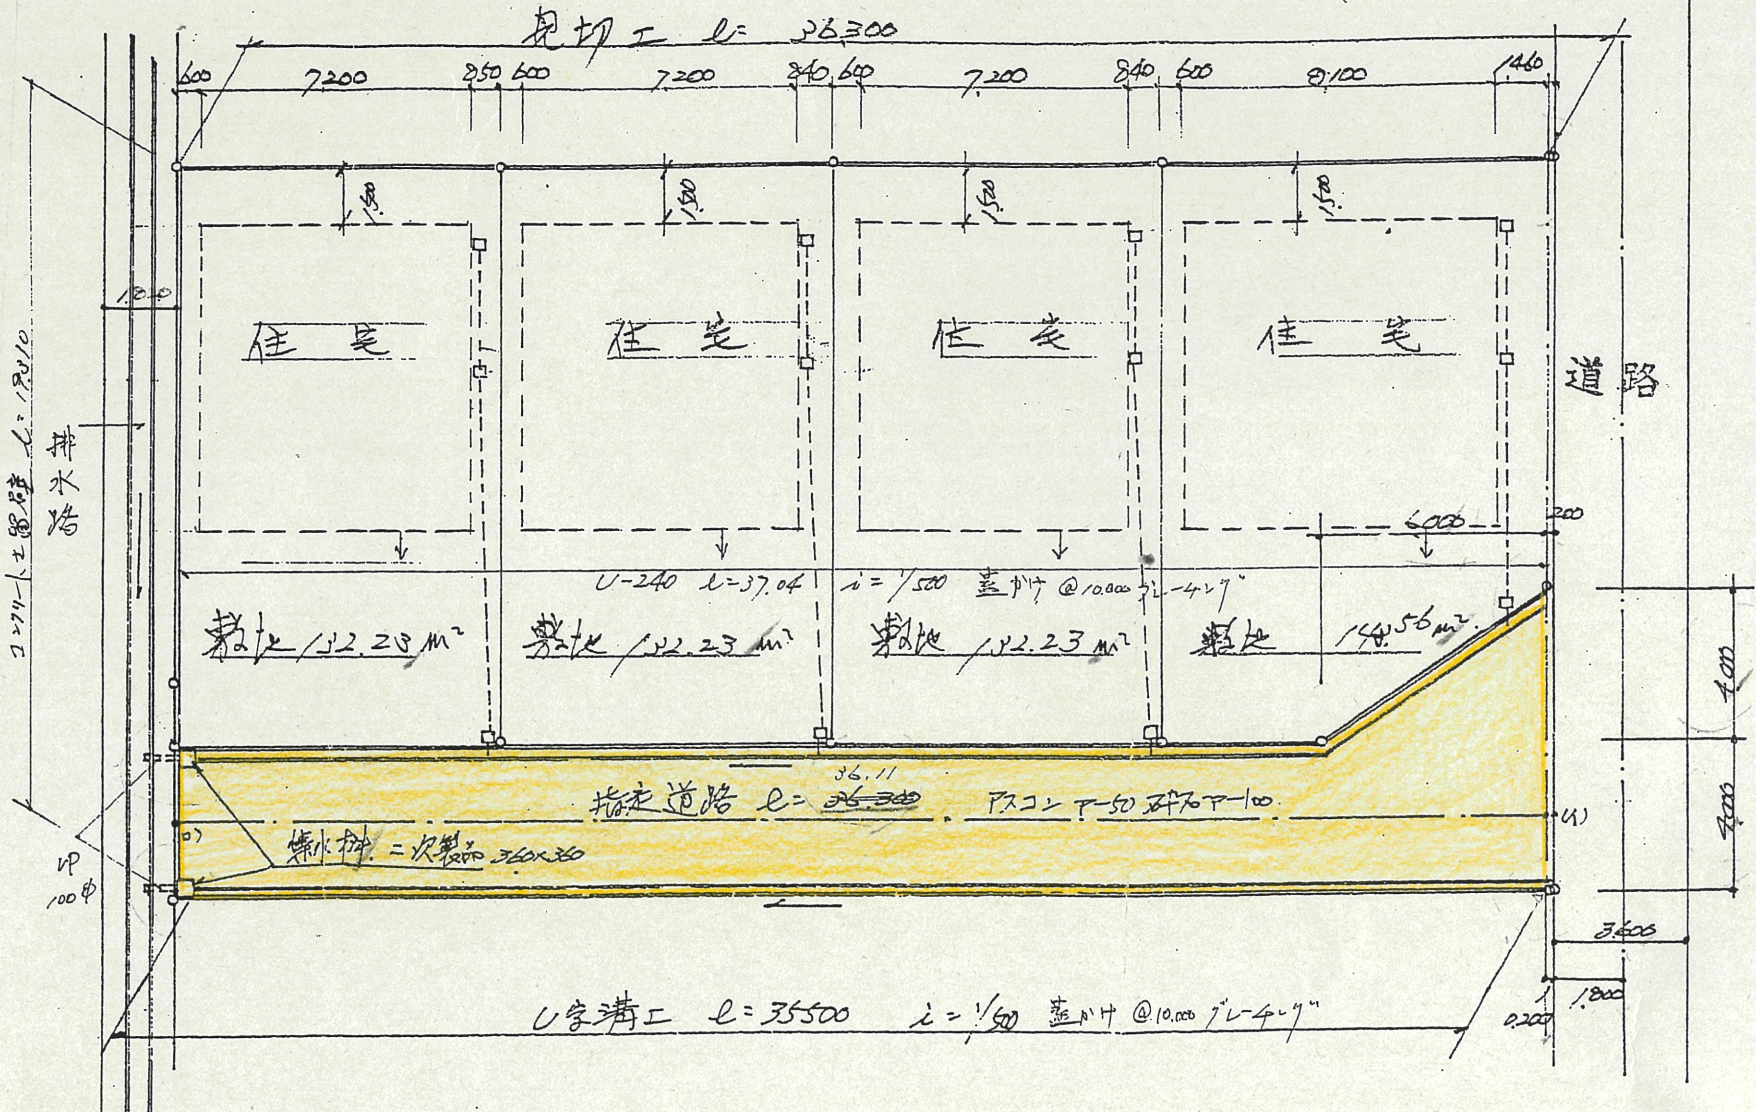 見切工 l= 36.300
600 7.200 850 600 7.200 840 600 7.200 840 600 8.100 1.460
1.500 1.500 1.500 1.500
住宅 住宅 住宅 住宅
道路
排水路
コンクリート土留壁
6.000 200
U-240 l=37.04 i=1/500 蓋かけ @10.000 グレーチング
敷地 132.23m² 敷地 132.23m² 敷地 132.23m² 敷地 148.56m²
4.000
36.11
指定道路 l= 36.300 アスコン ア-50 砕石ア-100
4.000
集水桝 二次製品 360×360
VP
100φ
3.600
1.800
0.200
U字溝工 l=35500 i=1/500 蓋かけ @10.000 グレーチング